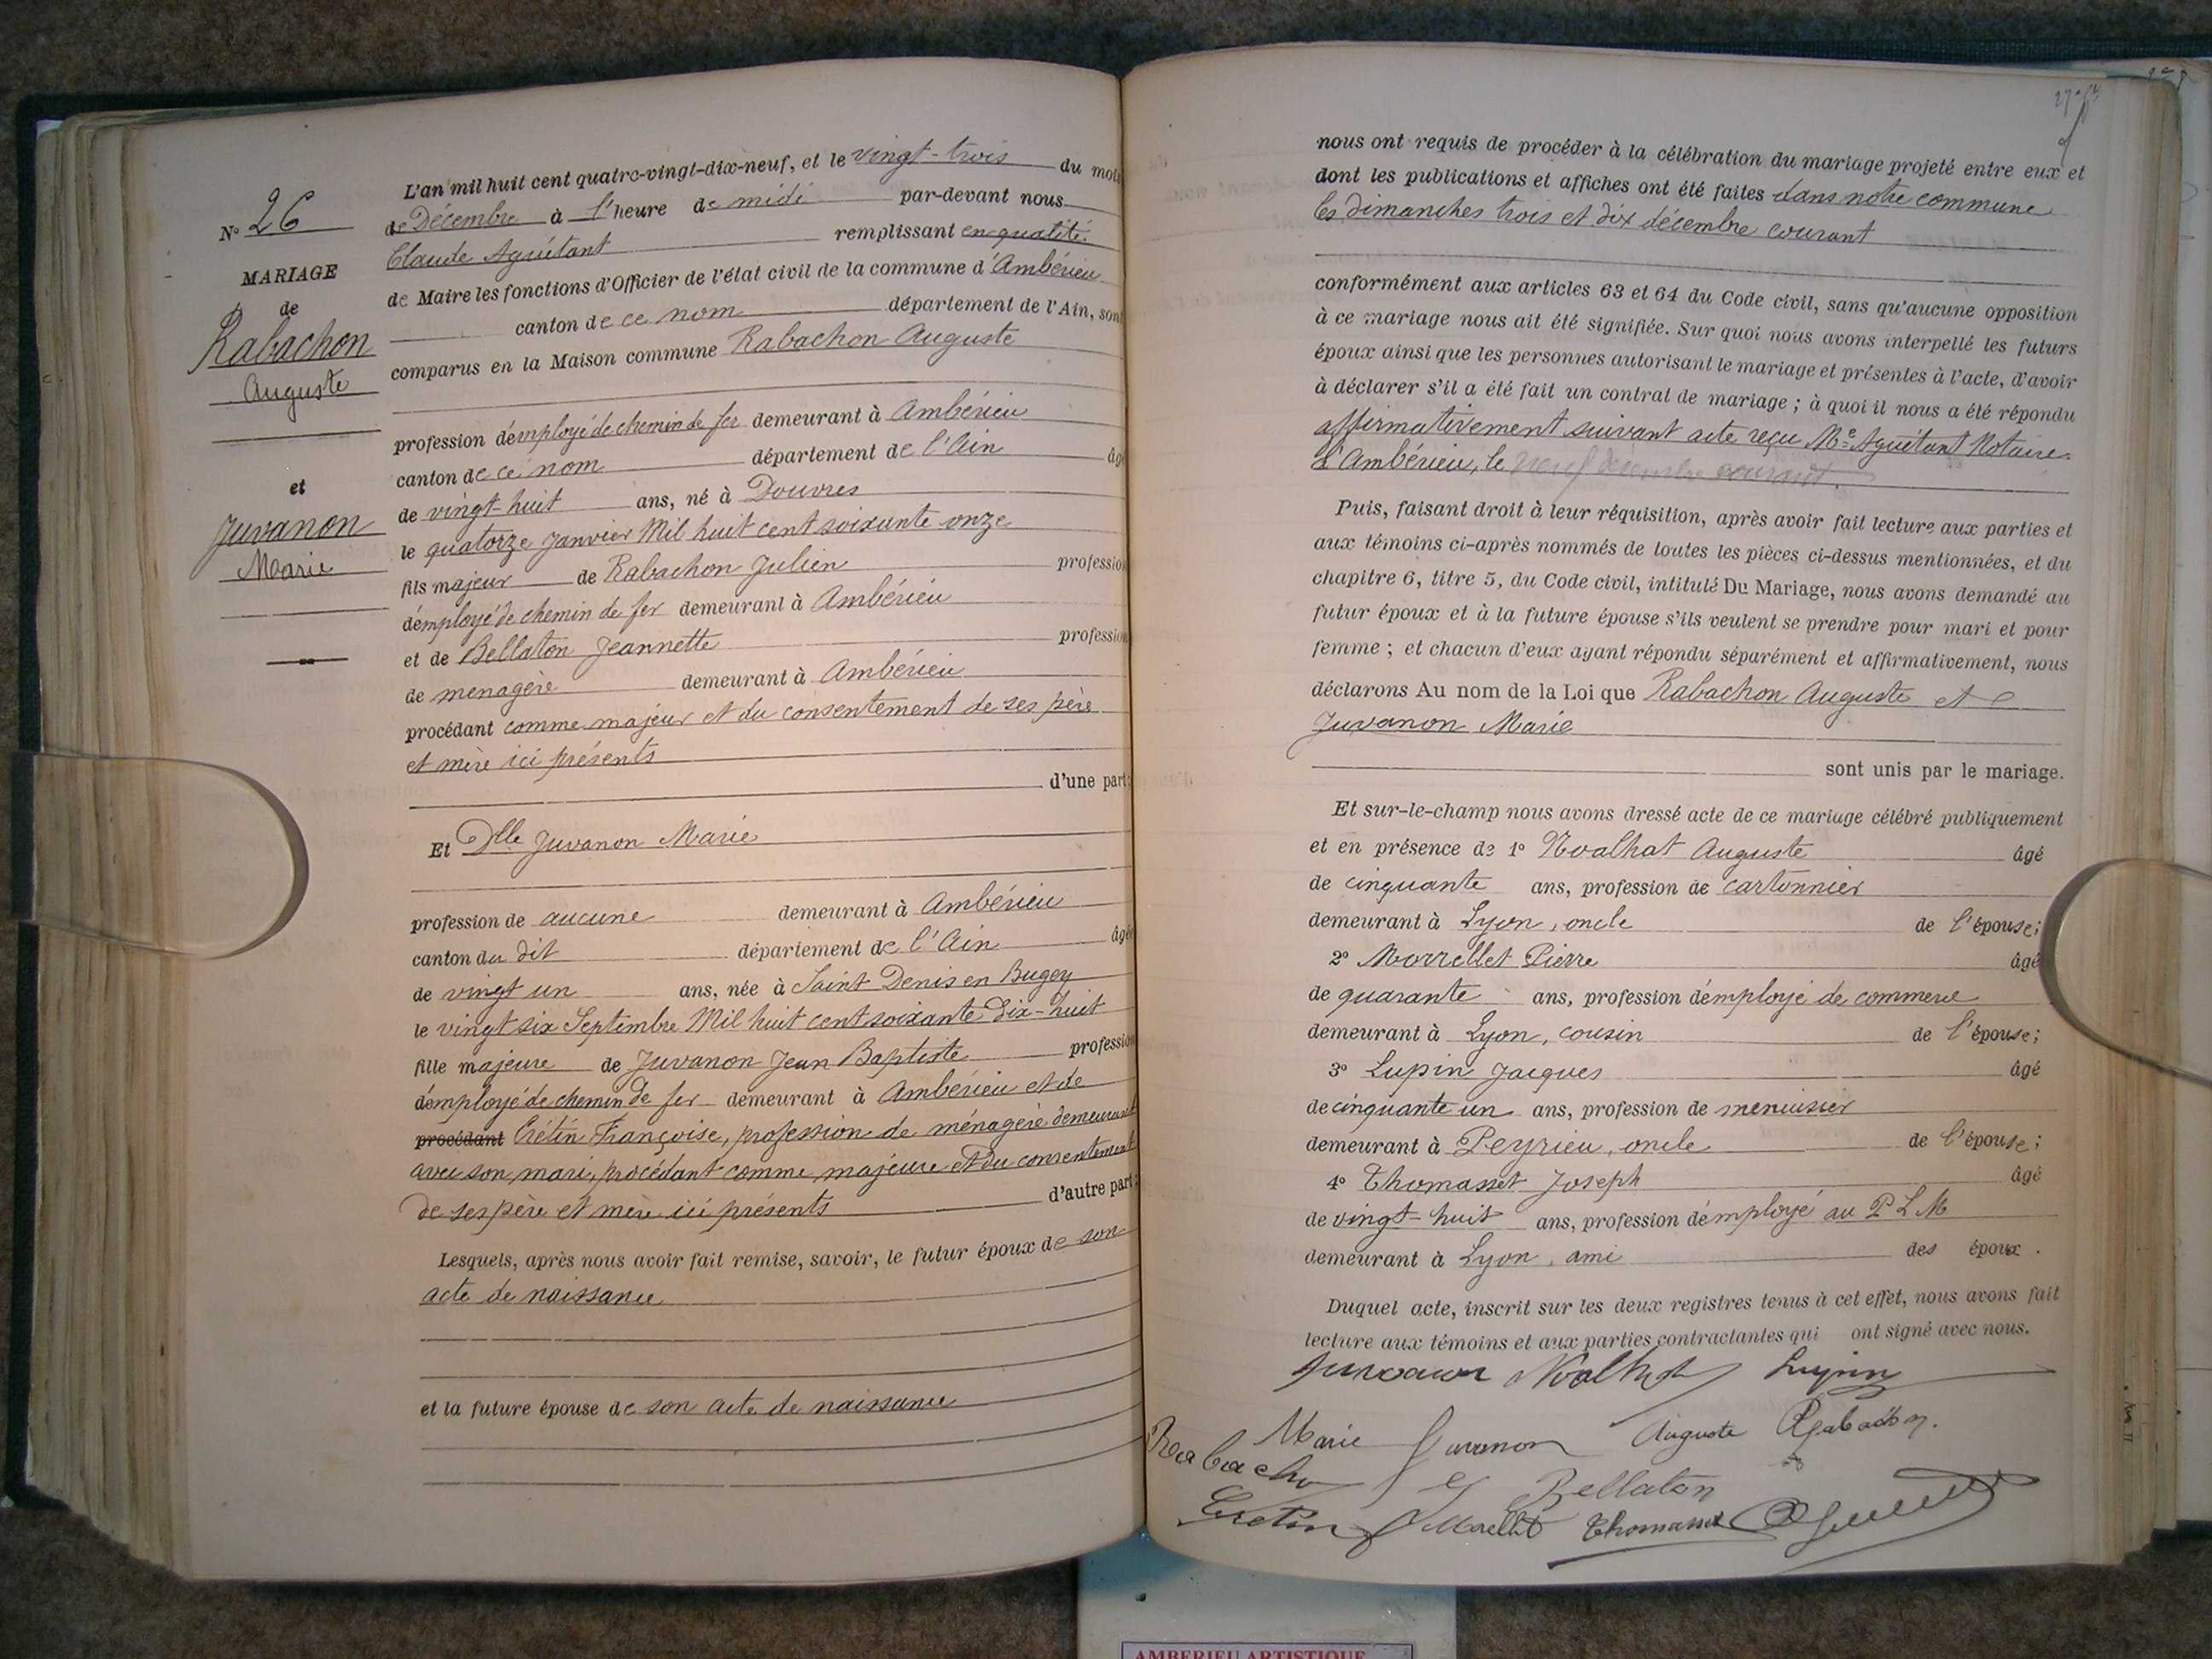 N° 26
MARIAGE
de
Rabachon
Auguste
et
Juvanon
Marie
L'an mil huit cent quatre-vingt-dix-neuf, et le vingt-trois du mois
de Décembre à l'heure de midi par-devant nous
Claude Aguétant remplissant en qualité
de Maire les fonctions d'Officier de l'état civil de la commune d'Ambérieu
canton de ce nom département de l'Ain, sont
comparus en la Maison commune Rabachon Auguste
profession d'employé de chemin de fer demeurant à Ambérieu
canton de ce nom département de l'Ain âgé
de vingt-huit ans, né à Douvres
le quatorze Janvier Mil huit cent soixante onze
fils majeur de Rabachon Julien profession
d'employé de chemin de fer demeurant à Ambérieu
et de Bellaton Jeannette profession
de menagère demeurant à Ambérieu
procédant comme majeur et du consentement de ses père
et mère ici présents
d'une part;
Et Dlle Juvanon Marie
profession de aucune demeurant à Ambérieu
canton du dit département de l'Ain âgée
de vingt un ans, née à Saint Denis en Bugey
le vingt six Septembre Mil huit cent soixante dix-huit
fille majeure de Juvanon Jean Baptiste profession
d'employé de chemin de fer demeurant à Ambérieu et de
procédant Crétin Françoise, profession de ménagère demeurant
avec son mari, procédant comme majeure et du consentement
de ses père et mère ici présents d'autre part;
Lesquels, après nous avoir fait remise, savoir, le futur époux de son
acte de naissance
et la future épouse de son acte de naissance
nous ont requis de procéder à la célébration du mariage projeté entre eux et
dont les publications et affiches ont été faites dans notre commune
les dimanches trois et dix décembre courant
conformément aux articles 63 et 64 du Code civil, sans qu'aucune opposition
à ce mariage nous ait été signifiée. Sur quoi nous avons interpellé les futurs
époux ainsi que les personnes autorisant le mariage et présentes à l'acte, d'avoir
à déclarer s'il a été fait un contrat de mariage ; à quoi il nous a été répondu
affirmativement suivant acte reçu Me Aguétant Notaire
d'Ambérieu, le neuf décembre courant.
Puis, faisant droit à leur réquisition, après avoir fait lecture aux parties et
aux témoins ci-après nommés de toutes les pièces ci-dessus mentionnées, et du
chapitre 6, titre 5, du Code civil, intitulé Du Mariage, nous avons demandé au
futur époux et à la future épouse s'ils veulent se prendre pour mari et pour
femme ; et chacun d'eux ayant répondu séparément et affirmativement, nous
déclarons Au nom de la Loi que Rabachon Auguste et
Juvanon Marie
sont unis par le mariage.
Et sur-le-champ nous avons dressé acte de ce mariage célébré publiquement
et en présence de 1° Noalhat Auguste âgé
de cinquante ans, profession de cartonnier
demeurant à Lyon, oncle de l'épouse;
2° Morrellet Pierre âgé
de quarante ans, profession d'employé de commerce
demeurant à Lyon, cousin de l'épouse;
3° Lupin Jacques âgé
de cinquante un ans, profession de menuisier
demeurant à Peyrieu, oncle de l'épouse;
4° Thomasset Joseph âgé
de vingt-huit ans, profession d'employé au P L M
demeurant à Lyon, ami des époux.
Duquel acte, inscrit sur les deux registres tenus à cet effet, nous avons fait
lecture aux témoins et aux parties contractantes qui ont signé avec nous.
Juvanon Noalhat Lupin
Marie Juvanon Auguste Rabachon.
Rabachon Bellaton
Cretin Morellet Thomasset
AMBERIEU ARTISTIQUE